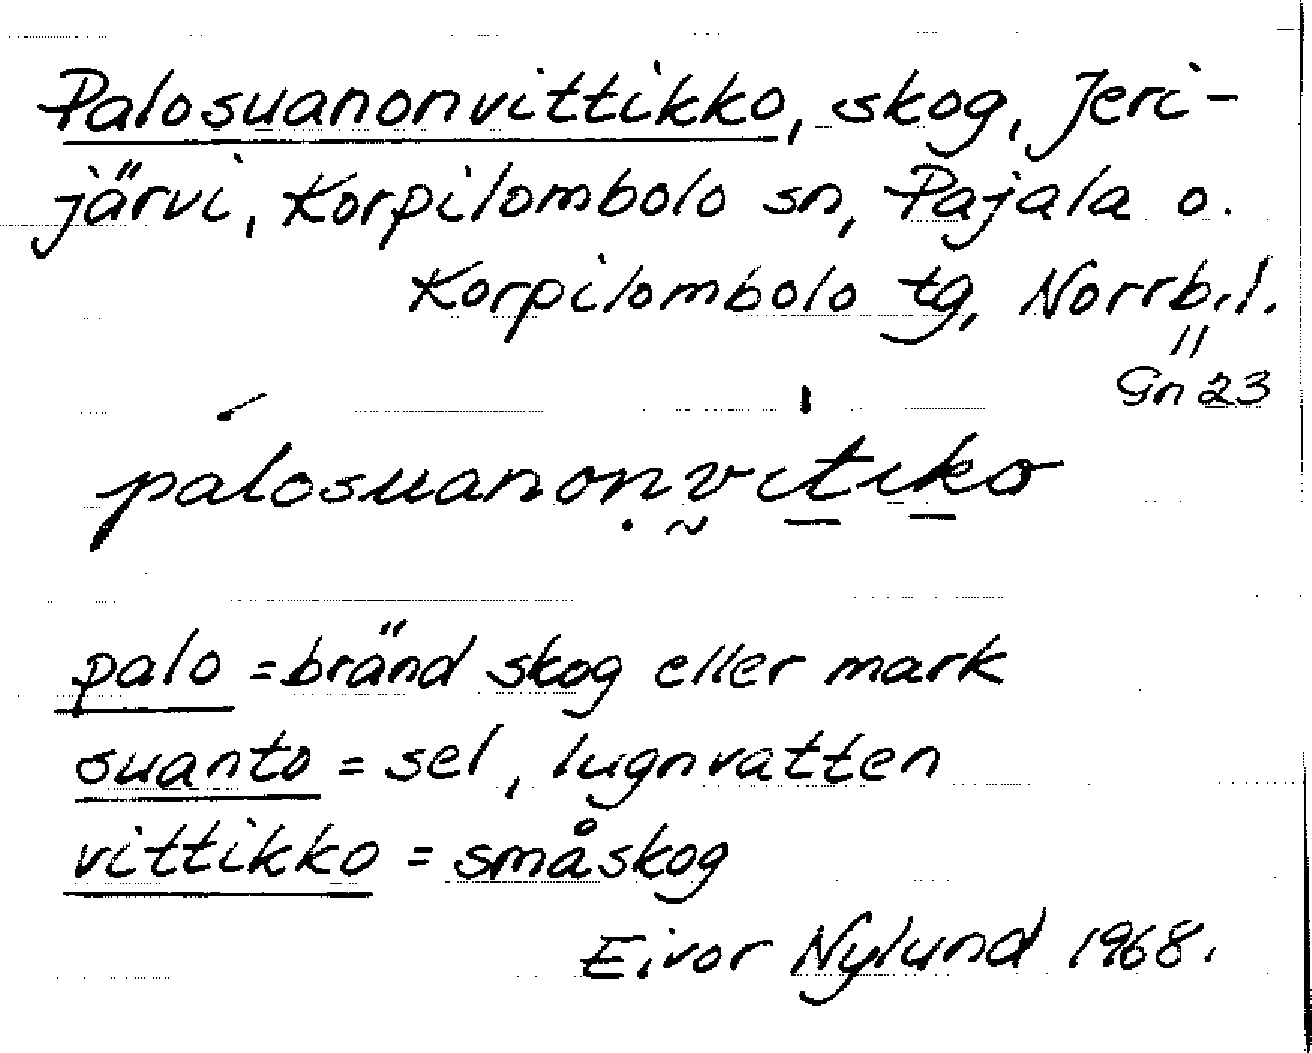 Palosuanonvittikko, skog, Jeri-
järvi, Korpilombolo sn, Pajala o.
Korpilombolo tg, Norrb. l.
Gn 23
palosuanonvitiko
palo = bränd skog eller mark
suanto = sel, lugnvatten
vittikko = småskog
Eivor Nylund 1968.